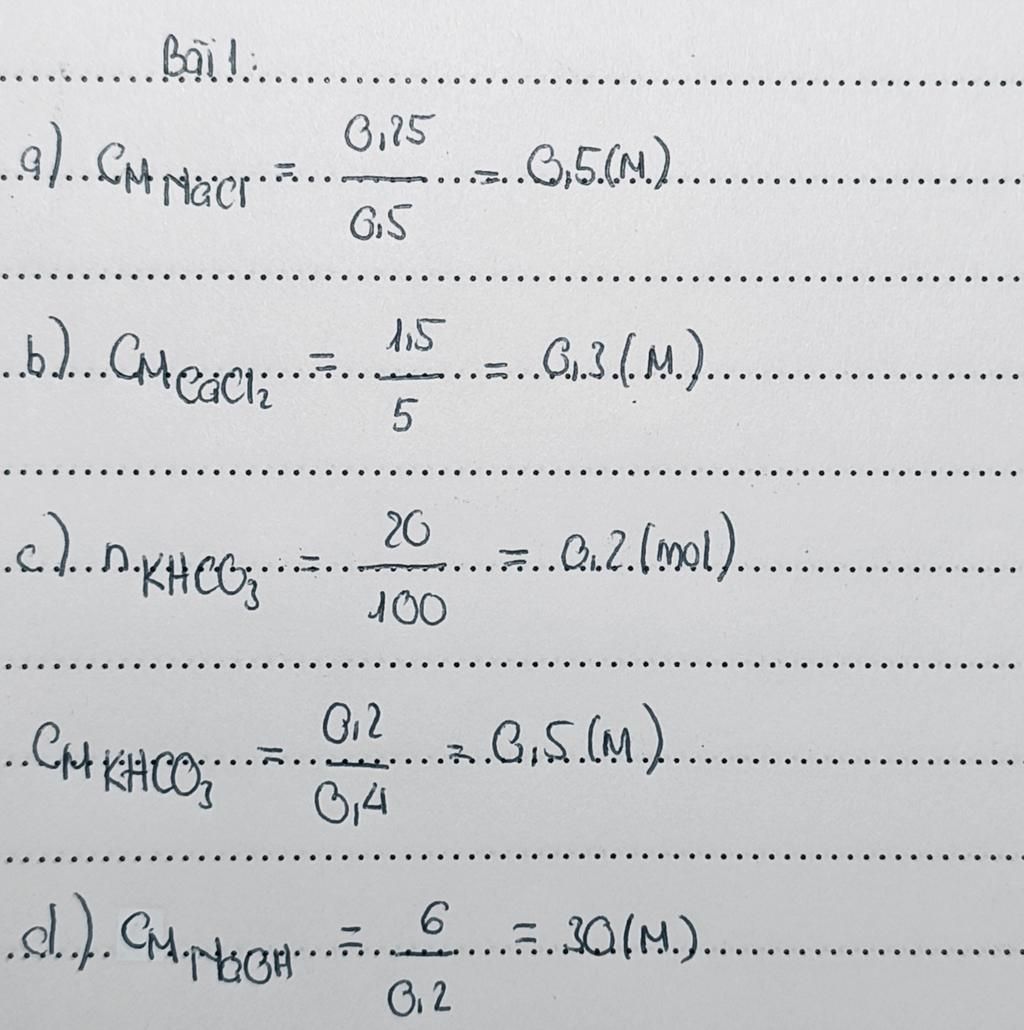 Bài 1:
a) CM NaCl = 0,25 / 0,5 = 0,5 (M)
b) CM CaCl₂ = 1,5 / 5 = 0,3 (M)
c) n KHCO₃ = 20 / 100 = 0,2 (mol)
CM KHCO₃ = 0,2 / 0,4 = 0,5 (M)
d) CM NaOH = 6 / 0,2 = 30 (M)